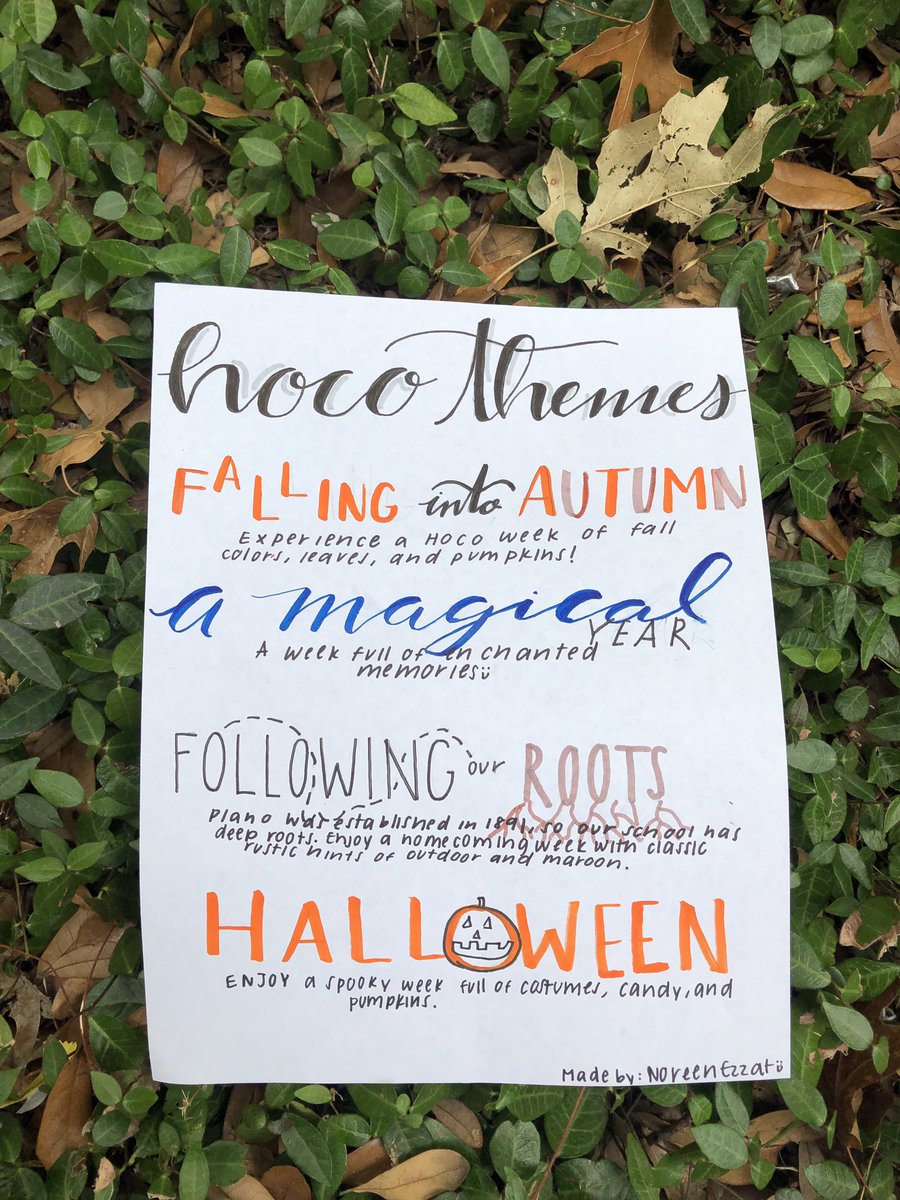 hoco themes
FALLING into AUTUMN
Experience a Hoco week of fall
colors, leaves, and pumpkins!
a magical
YEAR
A week full of enchanted
memories
FOLLOWING our ROOTS
Plano was established in 1891, so our school has
deep roots. Enjoy a homecoming week with classic
rustic hints of outdoor and maroon.
HALLOWEEN
ENJOY a spooky week full of costumes, candy, and
pumpkins.
Made by: Noreen Ezzat